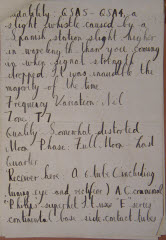 Readability. QSA5 - QSA4, a
slight whistle caused by a
Spanish station slight higher
in wavelength than your coming
up when signal strength
dropped. It was inaudible the
majority of the time
Frequency Variation. Nil
Tone. T9
Quality. Somewhat distorted
Moon Phase. Full Moon - Last
Quarter
Receiver here. A 6 tube (including
tuning eye and rectifier) A Commercial
"Philips" superhet. I use "E" series
continental base side contact tubes